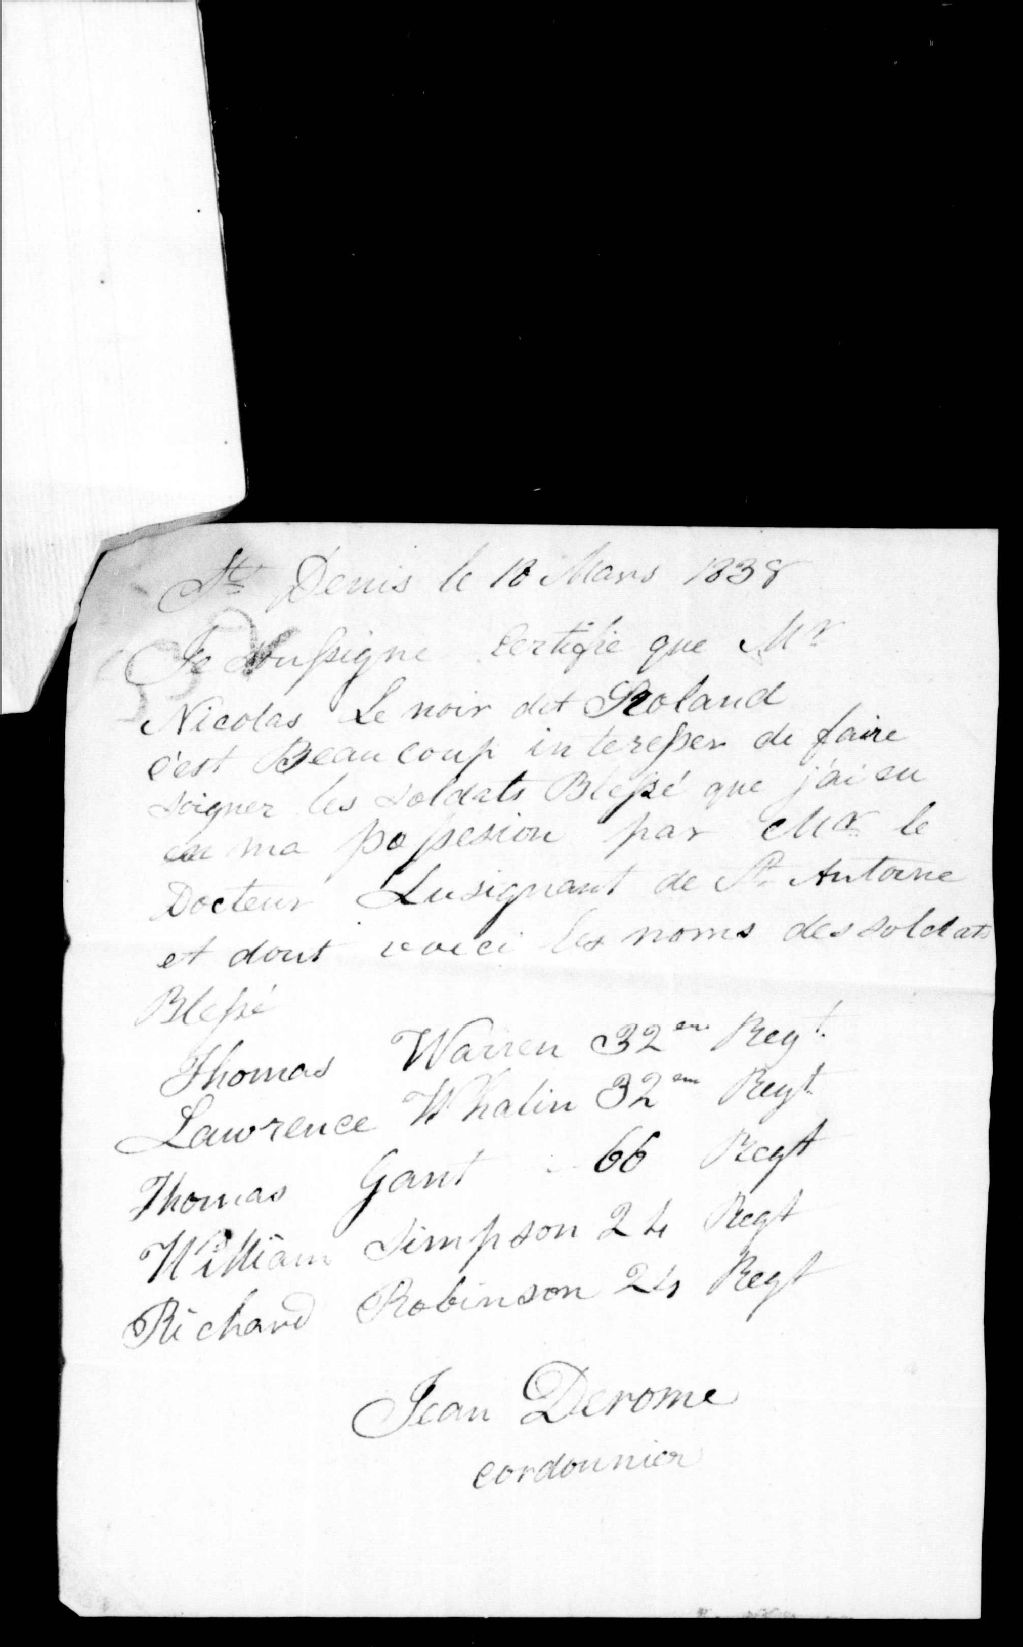 St Denis le 18 Mars 1838
Je soussigne certifie que Mr
Nicolas Le noir dit Roland
c'est Beaucoup interesser de faire
soigner les soldats Blessé que j'ai eu
en ma possesion par Mr le
Docteur Lusignant de St Antoine
et dont voici les noms des soldats
Blessé
Thomas Warren 32em Regt
Lawrence Whalin 32em Regt
Thomas Gant 66 Regt
William Simpson 24 Regt
Richard Robinson 24 Regt
Jean Derome
cordonnier